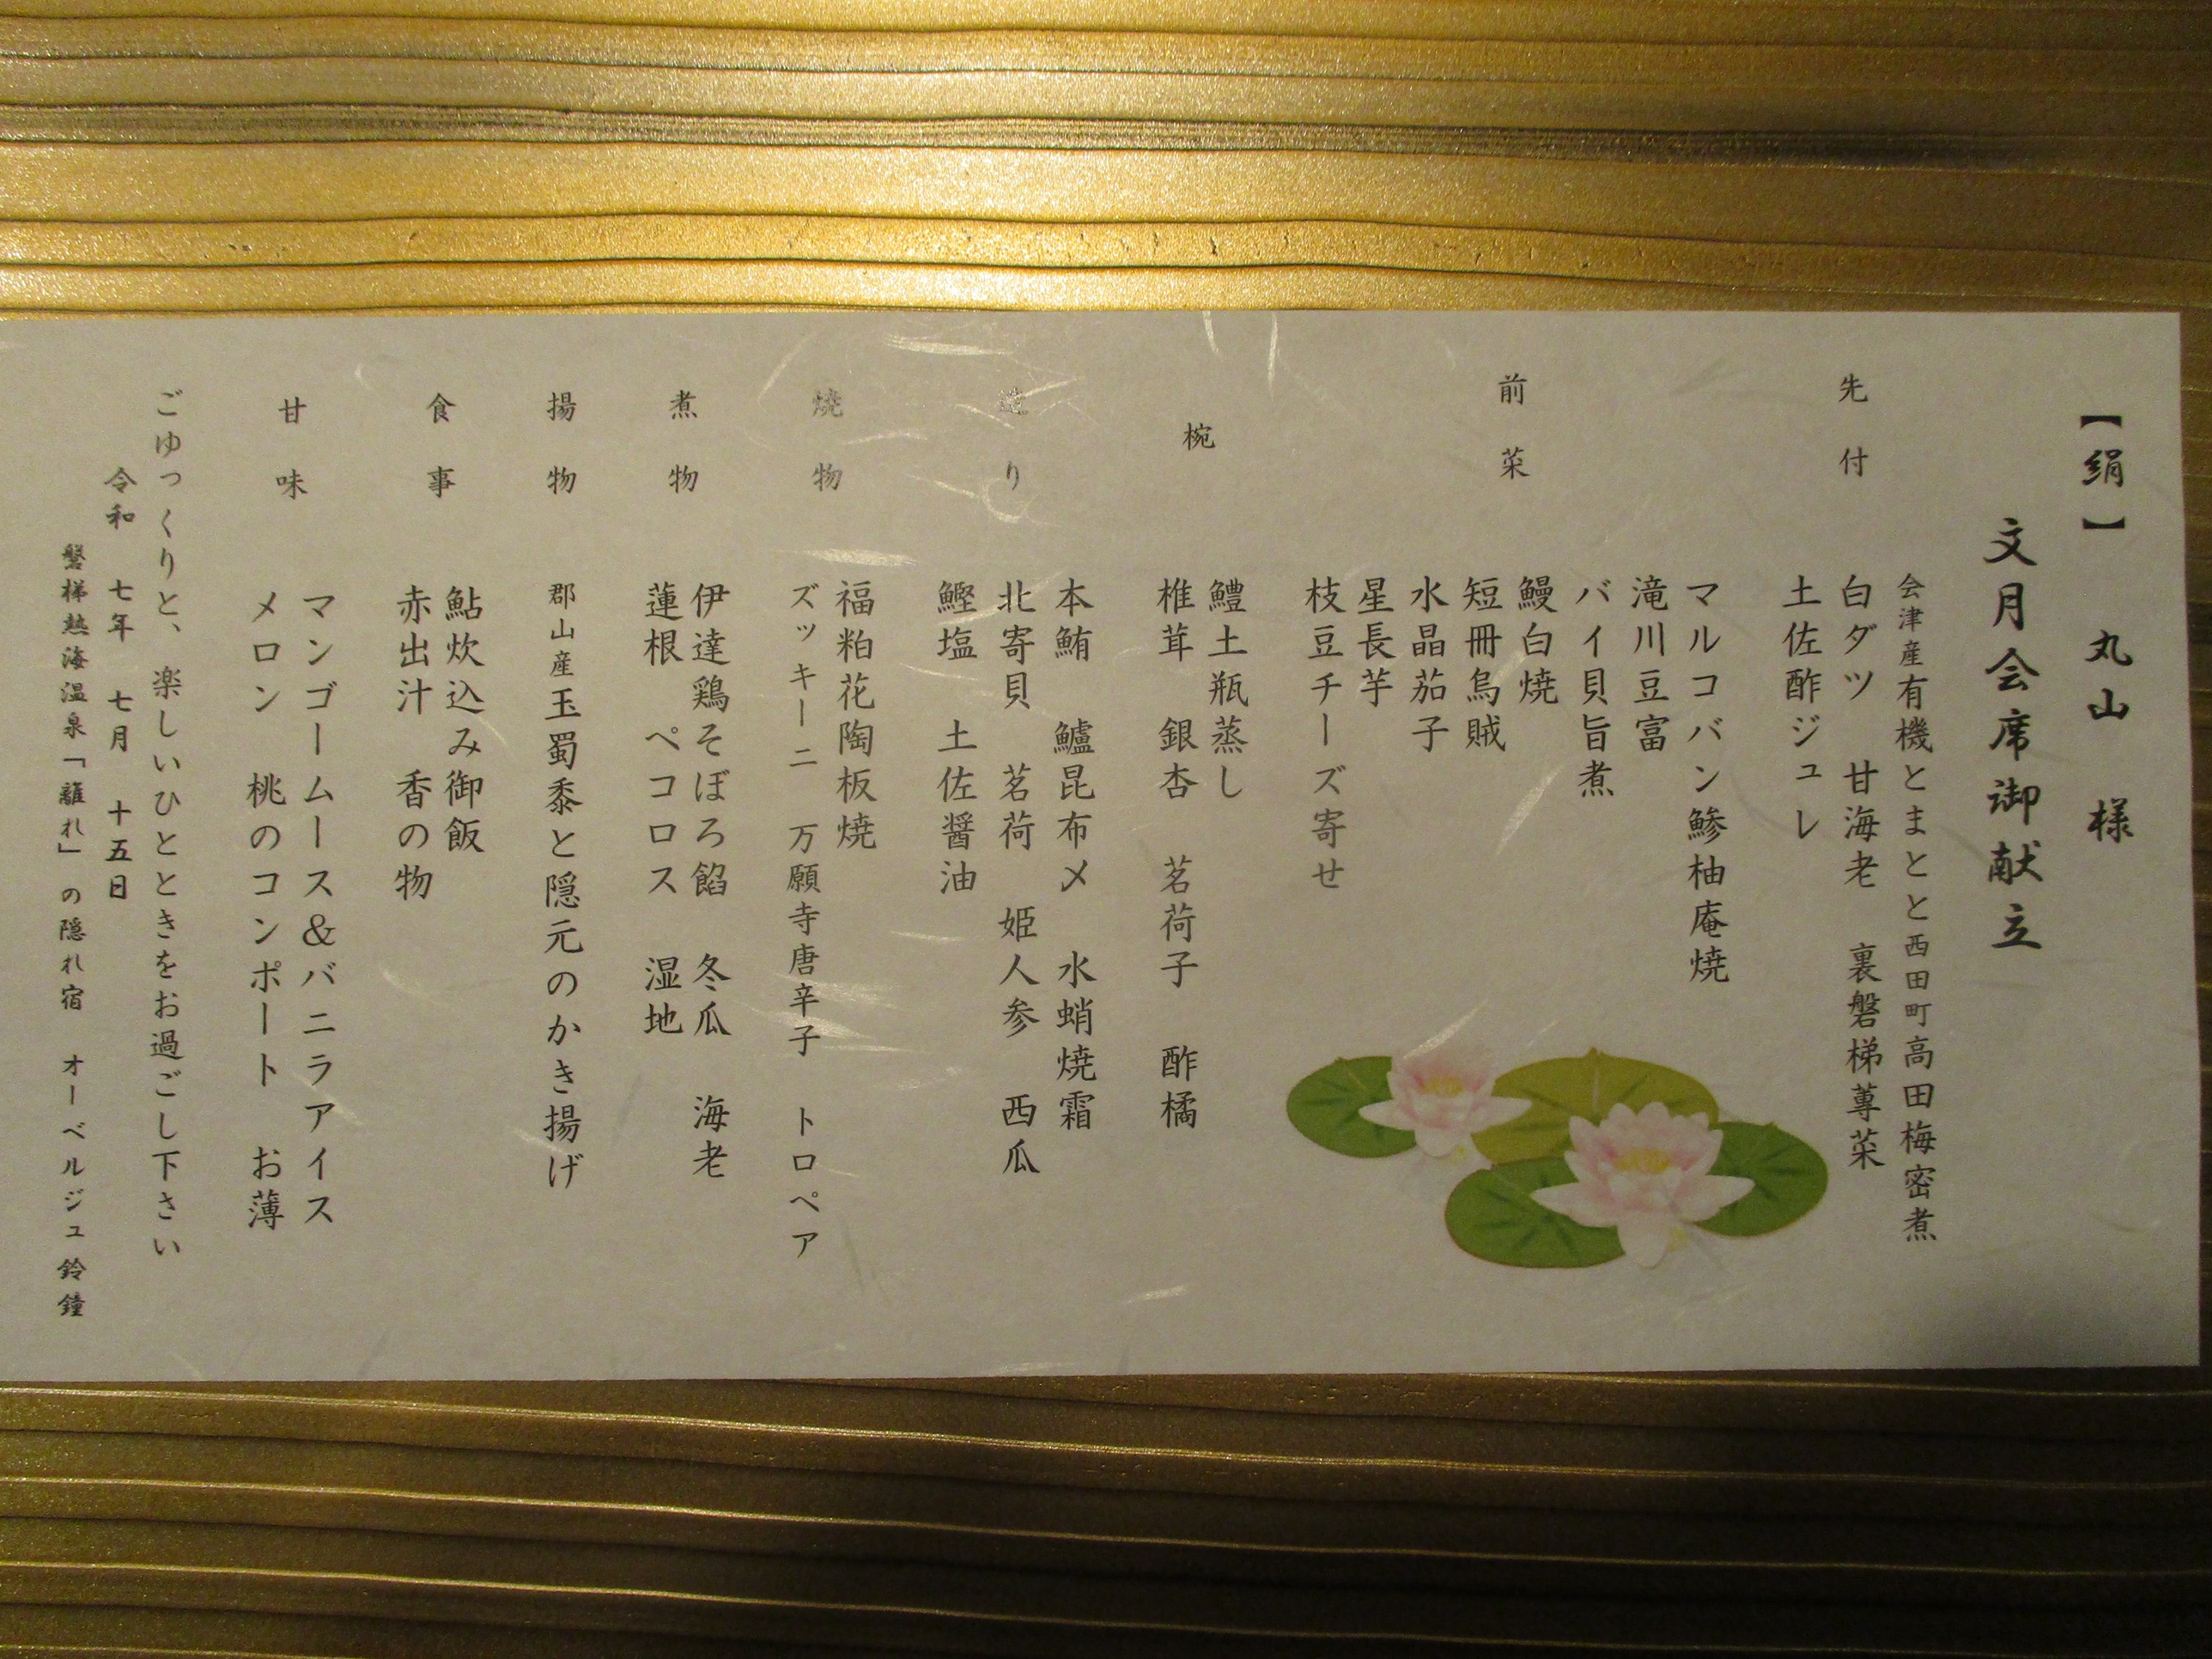 【絹】 丸山 様
文月会席御献立
先付
会津産有機とまとと西田町高田梅密煮
白ダツ 甘海老 裏磐梯蓴菜
土佐酢ジュレ
前菜
マルコバン鯵柚庵焼
滝川豆富
バイ貝旨煮
鰻白焼
短冊烏賊
水晶茄子
星長芋
枝豆チーズ寄せ
椀
鱧土瓶蒸し
椎茸 銀杏 茗荷子 酢橘
造り
本鮪 鱸昆布〆 水蛸焼霜
北寄貝 茗荷 姫人参 西瓜
鰹塩 土佐醤油
焼物
福粕花陶板焼
ズッキーニ 万願寺唐辛子 トロペア
煮物
伊達鶏そぼろ餡 冬瓜 海老
蓮根 ペコロス 湿地
揚物
郡山産玉蜀黍と隠元のかき揚げ
食事
鮎炊込み御飯
赤出汁 香の物
甘味
マンゴームース＆バニラアイス
メロン 桃のコンポート お薄
ごゆっくりと、楽しいひとときをお過ごし下さい
令和 七年 七月 十五日
磐梯熱海温泉「離れ」の隠れ宿 オーベルジュ鈴鐘